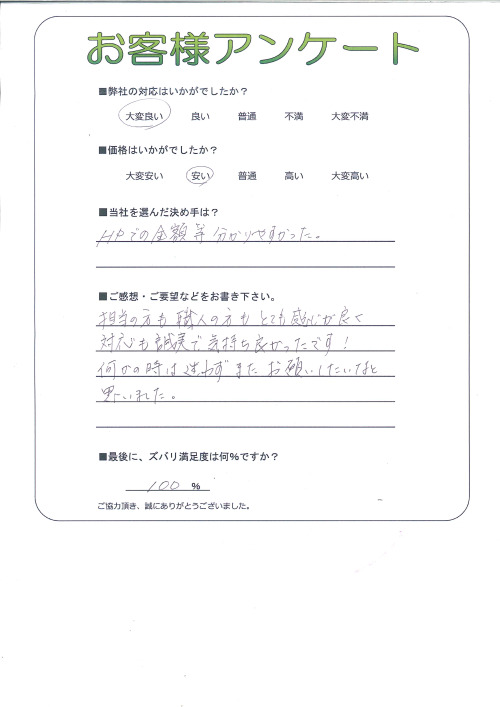 お客様アンケート
■弊社の対応はいかがでしたか？
大変良い 良い 普通 不満 大変不満
■価格はいかがでしたか？
大変安い 安い 普通 高い 大変高い
■当社を選んだ決め手は？
HPでの金額等 分かりやすかった。
■ご感想・ご要望などをお書き下さい。
担当の方も 職人の方も とても感じが良く
対応も誠実で気持ち良かったです！
何かの時は迷わず また お願いしたいなと
思いました。
■最後に、ズバリ満足度は何%ですか？
100 %
ご協力頂き、誠にありがとうございました。